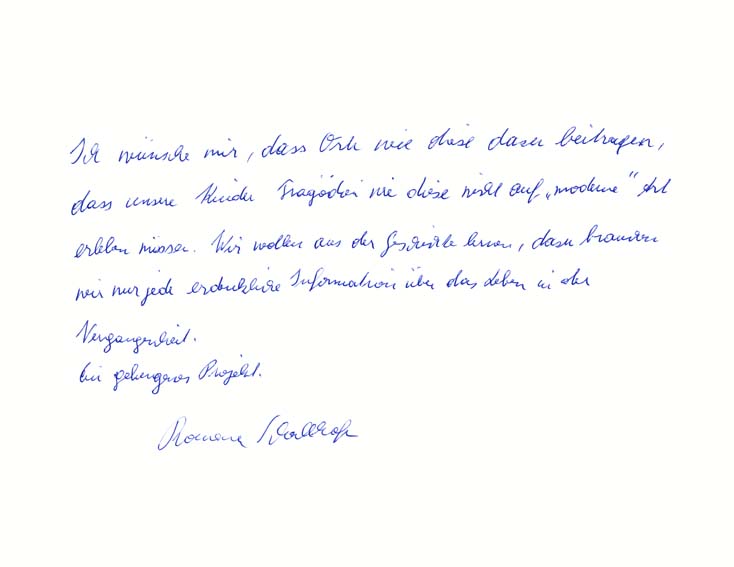 Ich wünsche mir, dass Orte wie diese dazu beitragen,
dass unsere Kinder Tragödien wie diese nicht auf „moderne" Art
erleben müssen. Wir wollen aus der Geschichte lernen, dazu brauchen
wir nur jede erdenkliche Information über das Leben in der
Vergangenheit.
Ein gelungenes Projekt.
Romana